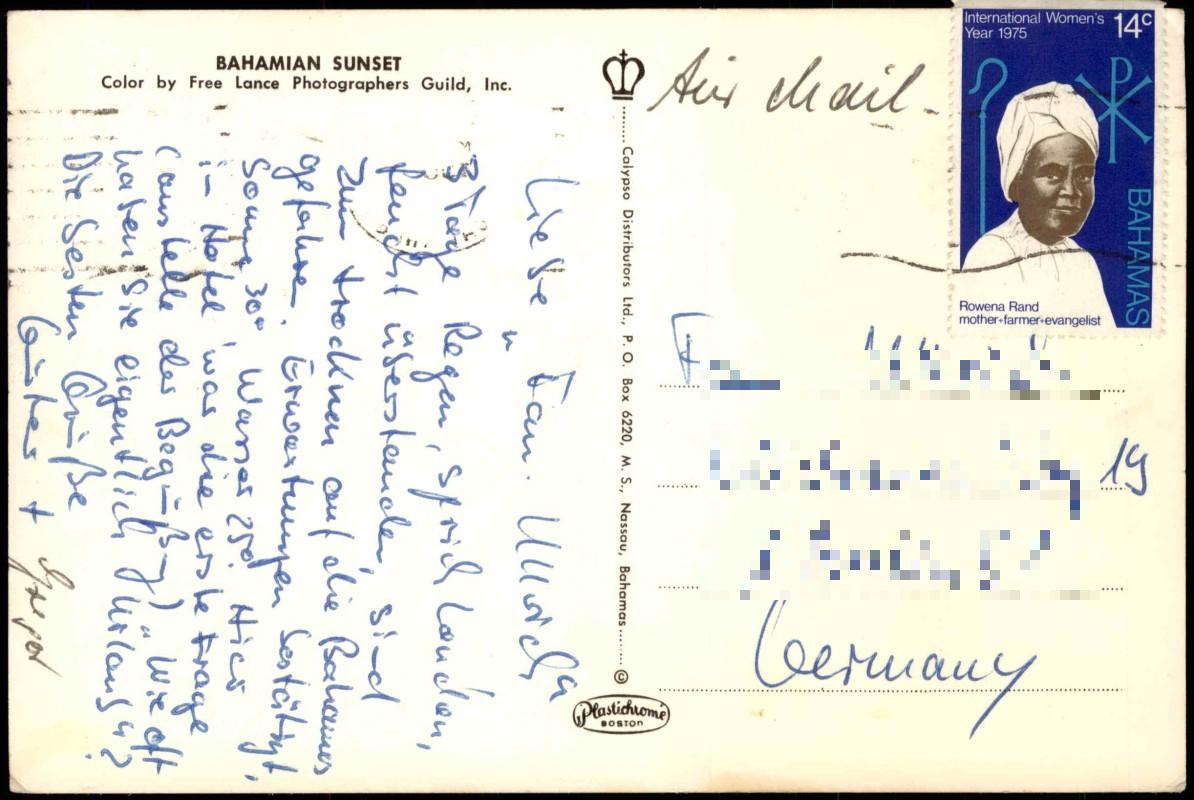 BAHAMIAN SUNSET
Color by Free Lance Photographers Guild, Inc.
Liebe Fam. Ullrich,
3 Tage Regen, sprich London,
feucht überstanden, sind
zum trocknen auf die Bahamas
gefahren. Erwartungen bestätigt,
Sonne 30° Wasser 25°. Hier
im Hotel war die erste Frage
(anstelle der Begrüßung) "Wie oft
haben Sie eigentlich Urlaub"?
Die besten Grüße
Günter +
Gregor
Calypso Distributors Ltd., P. O. Box 6220, M. S., Nassau, Bahamas
©
Plastichrome
BOSTON
Air Mail
International Women's
Year 1975
14c
BAHAMAS
Rowena Rand
mother•farmer•evangelist
19
Germany